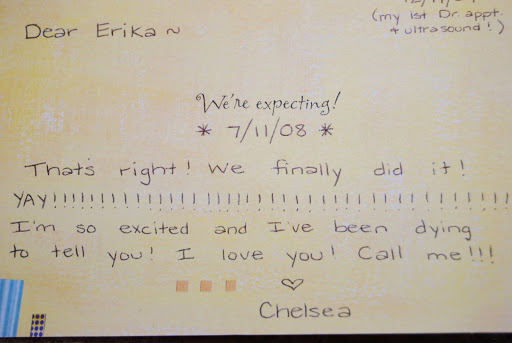 (my 1st Dr. appt.
+ ultrasound!)
Dear Erika ~
We're expecting!
* 7/11/08 *
That's right! We finally did it!
YAY!!!!!!!!!!!!!!!!!!!!!!!!!!!!!!!!!!!!!!!!
I'm so excited and I've been dying
to tell you! I love you! Call me!!!
♡
Chelsea